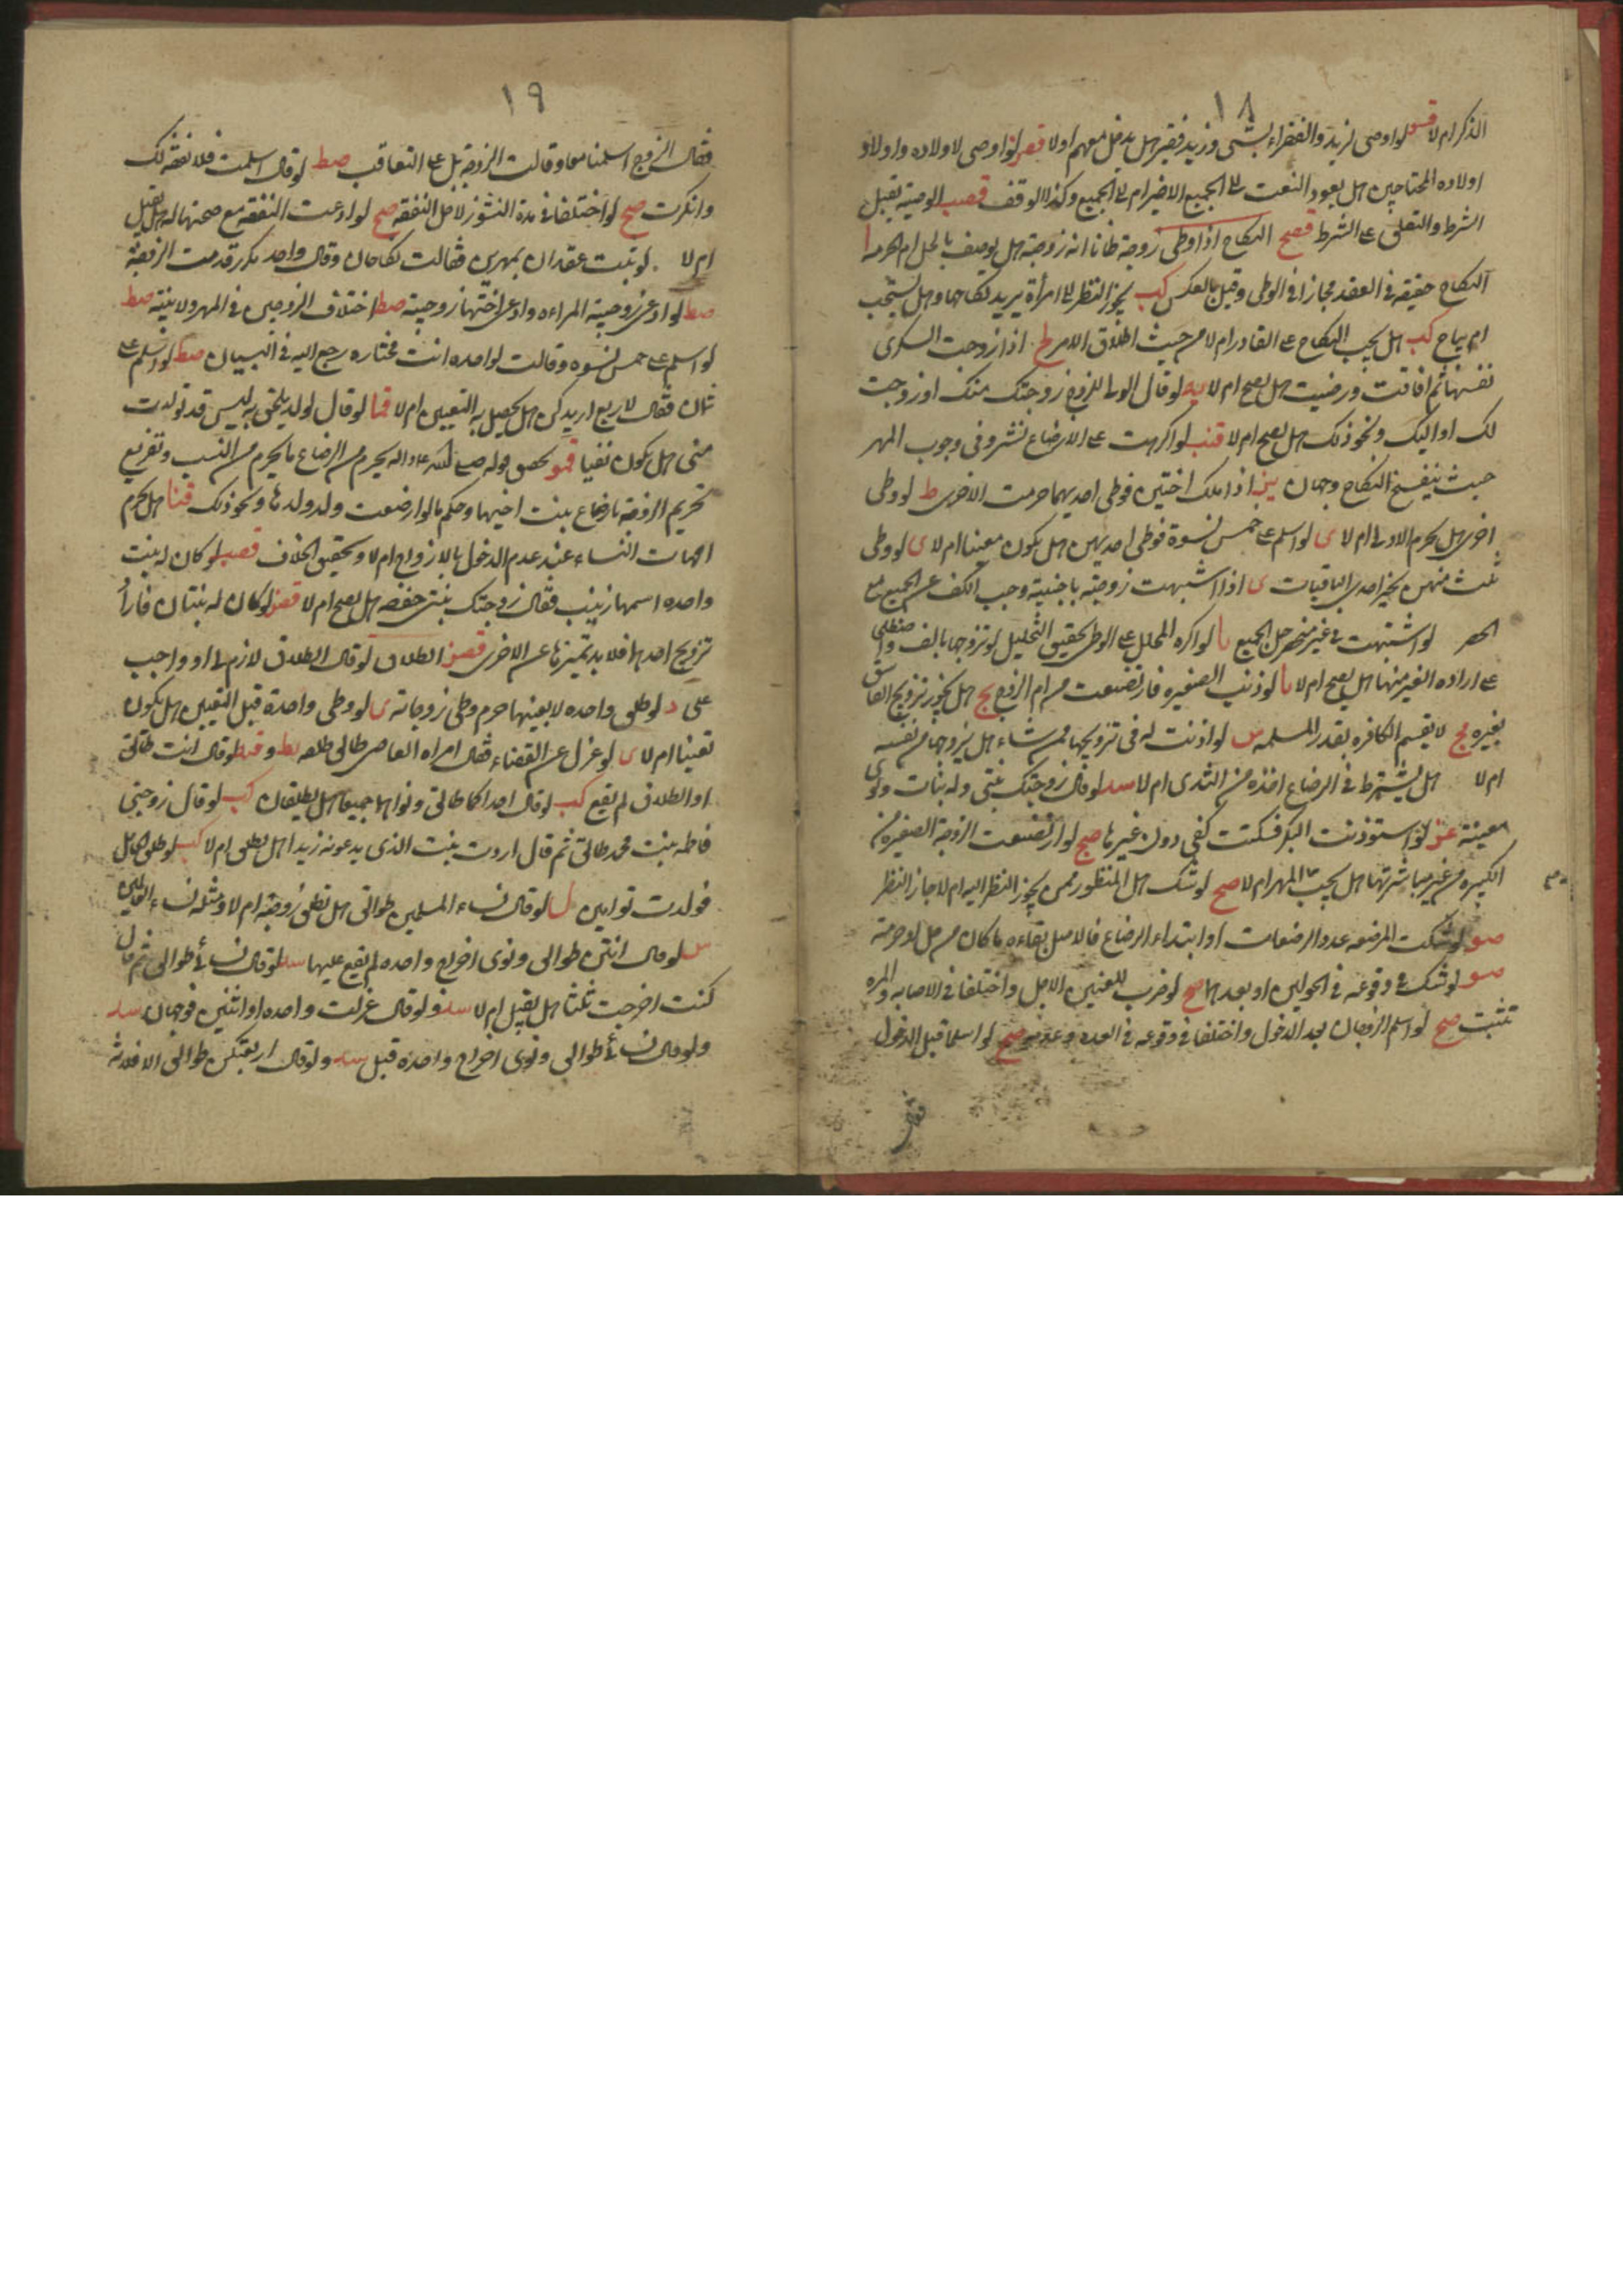 ١٨
الذكر ام لا قسو لو اوصى لزيد والفقراء بشئ وزيد فقير هل يدخل معهم اولا قصر لو اوصى لاولاده واولاد
اولاده المحتاجين هل يعود النعت الى الجميع الاخير ام الى الجميع وكذا الوقف قصب الوصية يقبل
الشرط والتعلق على الشرط قصح النكاح اذا وطى زوجة ظانا انه زوجة هل يوصف بالحل ام الحرمة ا
النكاح حقيقة فى العقد مجازا فى الوطى وقيل بالعكس كب يجوز النظر الى امرأة يريد نكاحها وهل يستحب
ام يباح كب هل يجب النكاح على القادر ام لا من حيث اطلاق الامر ط اذا زوجت السكرى
نفسها ثم افاقت ورضيت هل يصح ام لا يه لو قال الولى للزوج زوجتك منك او زوجت
لك او اليك ونحو ذلك هل يصح ام لا قنب لو اكرهت على الارضاع نشر وفى وجوب المهر
حيث ينفسخ النكاح وجهان ينج اذا ملك اختين فوطى احديهما حرمت الاخرى ط لو وطى
اخرى هل يحرم الاولى ام لا ى لو اسلم على خمس نسوة فوطى احديهن هل يكون معينا ام لا ى لو وطى
ثلث منهن يخير احدى الباقيات ى اذا اشبهت زوجته باجنبية وجب الكف عن الجميع مع
الحصر لو اشتبهت فى غير منحصر حل الجميع با لو اكره المحلل على الوطى لحقيق التحليل لو تزوجها بالف
على اراده الغير منها هل يصح ام لا با لو الصغيره فارتضعت من ام الزوج بج هل يجوز تزويج الفاسق
بغيره مج لا يقسم الكافره بقدر للمسلمه س لو اذنت له فى تزويجها ممن شاء هل يزوجها من نفسه
ام لا هل يشترط فى الرضاع اخذه من الثدى ام لا سد لو قال زوجتك بنتى وله بنات ونوى
معينة عز لو استوذنت البكر فسكتت كفى دون غيرها صح لو ارتضعت الزوجة الصغيره من
الكبيره من غير مباشرتها هل يجب المهر ام لا صح لو شك هل المنظور ممن يجوز النظر اليه ام لا جاز النظر
صو لو شكت المرضعه عدد الرضعات او ابتداء الرضاع فالاصل بقاءه ما كان من حل او حرمة
صو لو شك فى وقوعه فى الحولين او بعدهما صح لو ضرب للعنين الاجل واختلفا فى الاصابه والمره
تثبت صح لو اسلم الزوجان بعد الدخول واختلفا فى وقوعه فى العده وعدمه صح لو اسلما قبل الدخول
فقال
١٩
فقال الزوج اسلمنا معا وقالت الزوجة بل على التعاقب صط لو قال اسلمت فلا نفقة لك
وانكرت صح لو اختلفا فى مدة النشوز لاجل النفقه صح لو ادعت النفقه مع صحتها له هل يقبل
ام لا لو ثبت عقدان بمهرين فقالت نكاحان وقال واحد مكرر قدمت الزوجة
صط لو ادعى زوجية المراءه وادعى اختها زوجيته صط اختلاف الزوجين فى المهر ولا بينة صط
لو اسلم على خمس نسوه وقالت لواحده انت مختاره رجع اليه فى البيان صط لو اسلم على
ثمان فقال لاربع اريدكن هل يحصل به التعيين ام لا قما لو قال لولد يلحق به ليس قد تولدت
منى هل يكون نفيا قمو تحصى قوله صلى الله عليه واله يحرم من الرضاع ما يحرم من النسب وتفريع
تحريم الزوجة بارضاع بنت اخيها وحكم ما لو ارضعت ولد ولدها ونحو ذلك قنا هل يحرم
امهات النساء عند عدم الدخول بالازواج ام لا وتحقيق الخلاف قصب لو كان له بنت
واحده اسمها زينب فقال زوجتك بنتى حفصه هل يصح ام لا قصز لو كان له بنتان فاراد
تزويج احديهما فلا بد تميزها عن الاخرى قصز الطلاق لو قال الطلاق لازم لى او واجب
على د لو طلق واحده لا بعينها حرم وطى زوجاته ى لو وطى واحدة قبل التعيين هل يكون
تعيينا ام لا ى لو عزل عن القضاء فقال امراه القاضى طالق بط وقط لو قال انت طالق
او الطلاق لم يقع كب لو قال احداكما طالق ونواهما جميعا هل يطلقان كب لو قال زوجتى
فاطمه بنت محمد طالق ثم قال اردت بنت الذى يدعونه زيدا هل تطلق ام لا كب لو طلق الحامل
فولدت توامين ل لو قال نساء المسلمين طوالق هل تطلق زوجته ام لا ومثله نساء العالمين
س لو قال انتن طوالق ونوى اخراج واحده لم يقع عليها سد لو قال نسائى طوالق ثم قال
كنت اخرجت ثلثا هل يقبل ام لا سد ولو قال عزلت واحده او اثنتين فوجهان سد
ولو قال نسائى طوالق ونوى اخراج واحدة قبل سد ولو قال اربعتكن طوالق الا فلانة